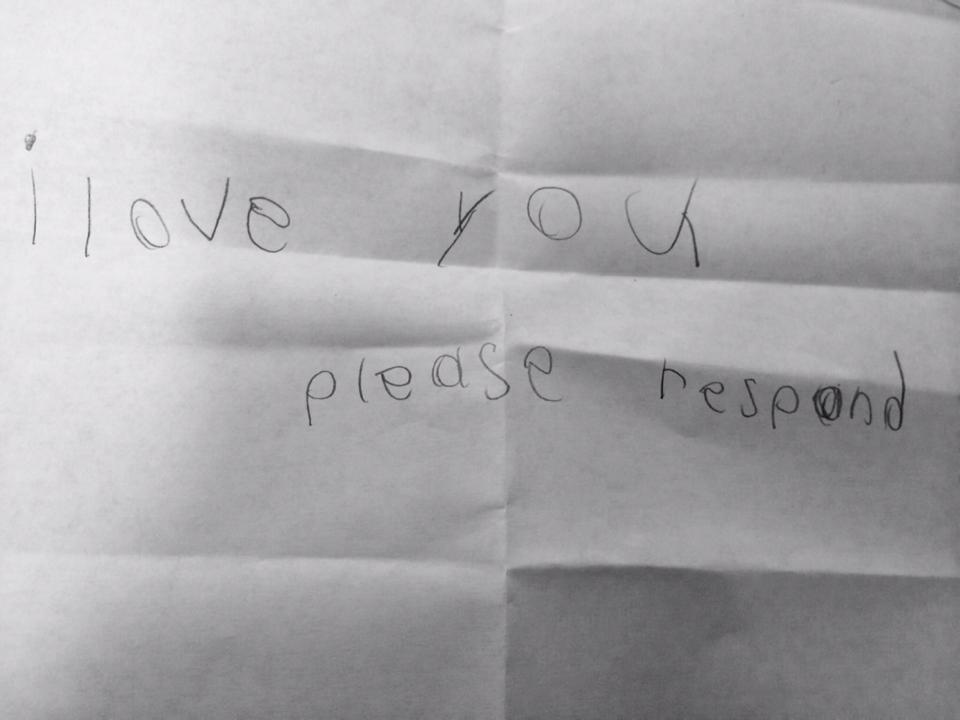 i love you
please respond